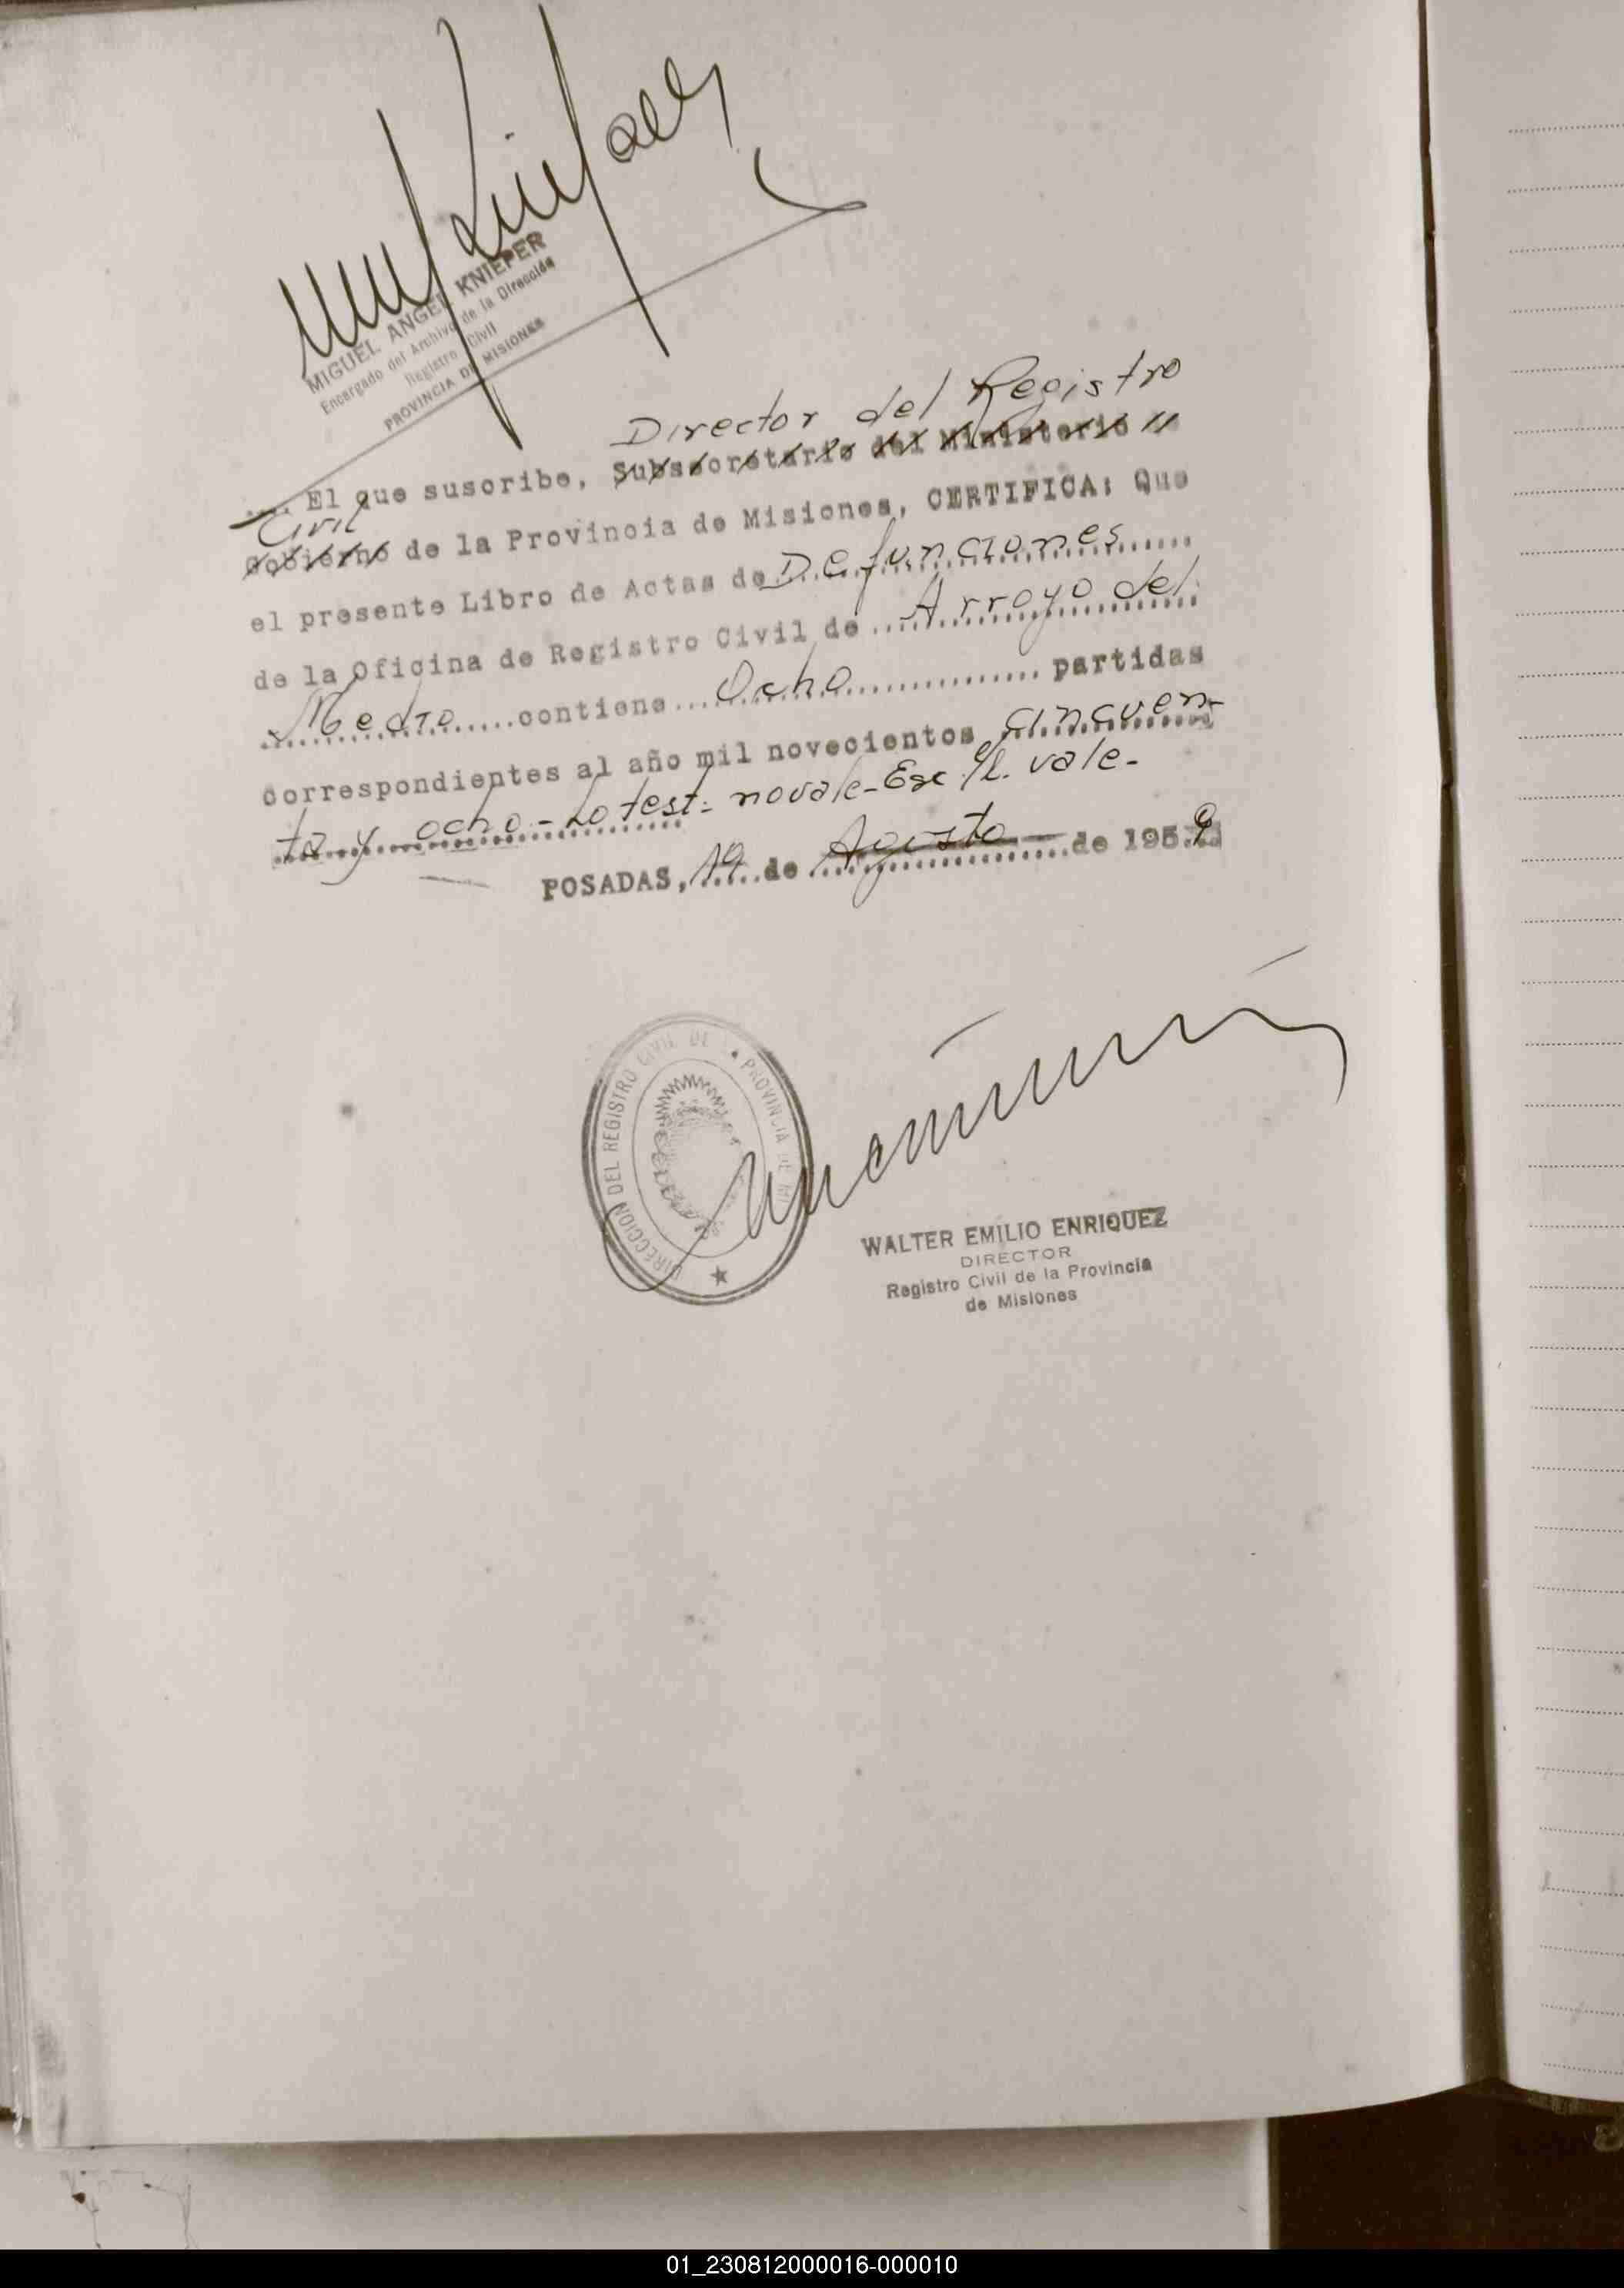 MIGUEL ANGEL KNIEPER
Encargado del Archivo de la Dirección
Registro Civil
PROVINCIA DE MISIONES
Director del Registro
.... El que suscribe, Subsecretario del Ministerio //
Civil
Gobierno de la Provincia de Misiones, CERTIFICA: Que
el presente Libro de Actas de Defunciones
de la Oficina de Registro Civil de Arroyo del
Medio contiene Ocho partidas
correspondientes al año mil novecientos cincuen-
ta y ocho - Lo test: no vale - Esc. e/l. vale -
POSADAS, 19 de Agosto de 1959
DIRECCION DEL REGISTRO CIVIL DE LA PROVINCIA DE MI
WALTER EMILIO ENRIQUEZ
DIRECTOR
Registro Civil de la Provincia
de Misiones
01_230812000016-000010